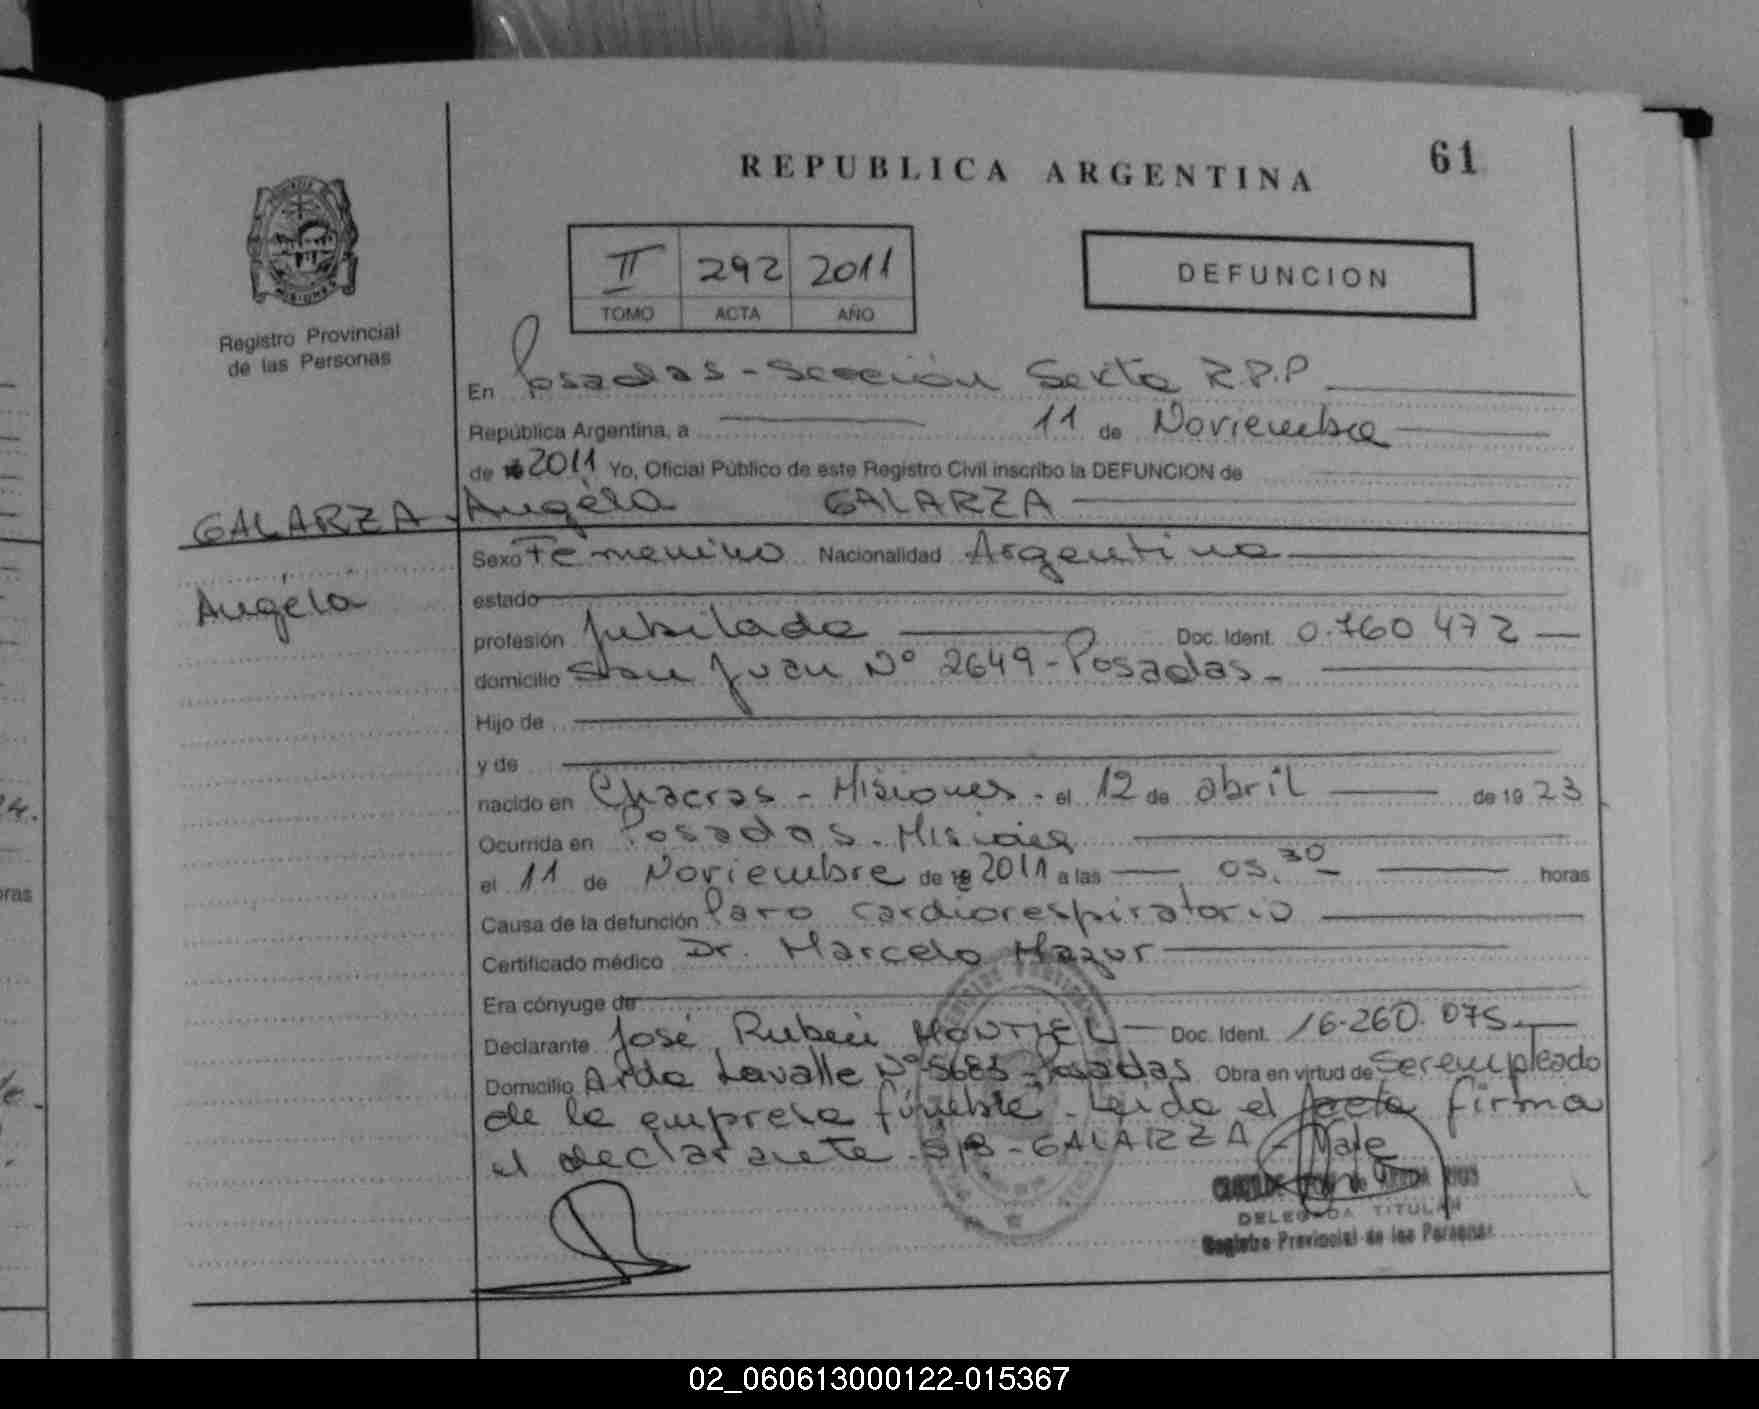 REPUBLICA ARGENTINA
61
MISIONES
Registro Provincial
de las Personas
II 292 2011
TOMO ACTA AÑO
DEFUNCION
En Posadas - Sección Sexta R.P.P
República Argentina, a 11 de Noviembre
de 2011 Yo, Oficial Público de este Registro Civil inscribo la DEFUNCION de
Angela GALARZA
GALARZA
Angela
Sexo Femenino Nacionalidad Argentina
estado
profesión Jubilada Doc. Ident. 0.760 472
domicilio San Juan Nº 2649 - Posadas -
Hijo de
y de
nacido en Chacras - Misiones - el 12 de abril de 1923
Ocurrida en Posadas - Misiones
el 11 de Noviembre de 2011 a las 05.30 horas
Causa de la defunción Paro cardiorespiratorio
Certificado médico Dr. Marcelo Mazur
Era cónyuge de
Declarante José Ruben MONTIEL - Doc. Ident. 16.260.075
Domicilio Avda Lavalle Nº 5683 - Posadas Obra en virtud de Ser empleado
de la empresa fúnebre - Leída el acta firma
el declarante - S/B - GALARZA - Vale
DELEGADA TITULAR
Registro Provincial de las Personas
02_060613000122-015367